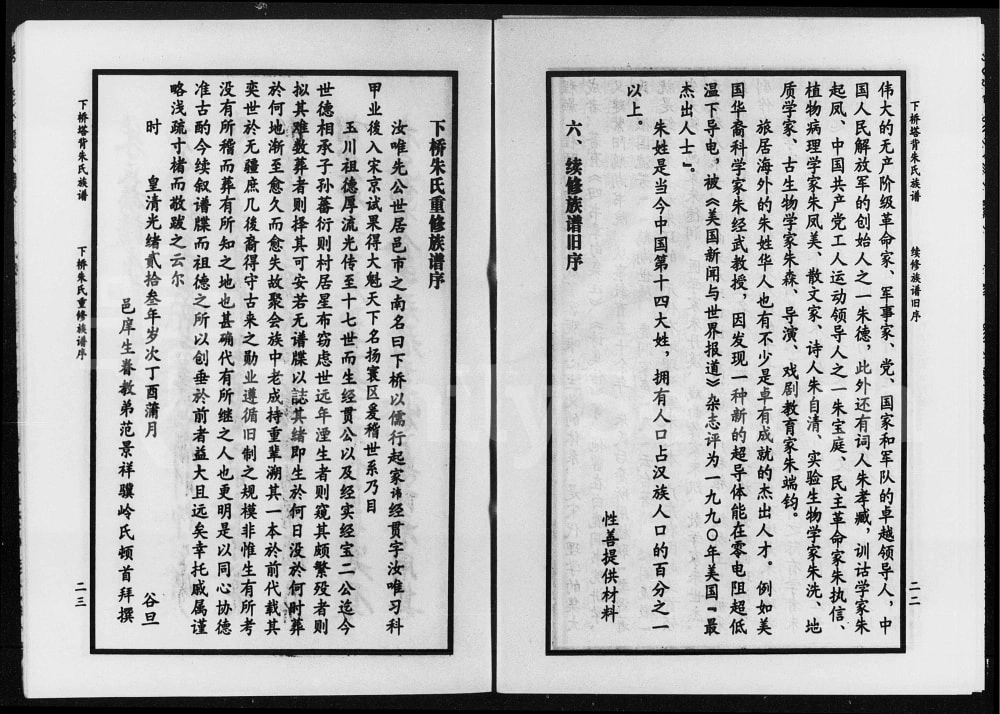 下桥塔背朱氏族谱
续修族谱旧序
二二
伟大的无产阶级革命家、军事家、党、国家和军队的卓越领导人，中
国人民解放军的创始人之一朱德，此外还有词人朱孝臧，训诂学家朱
起凤、中国共产党工人运动领导人之一朱宝庭、民主革命家朱执信、
植物病理学家朱凤美、散文家、诗人朱自清、实验生物学家朱洗、地
质学家、古生物学家朱森、导演、戏剧教育家朱端钧。
旅居海外的朱姓华人也有不少是卓有成就的杰出人才。例如美
国华裔科学家朱经武教授，因发现一种新的超导体能在零电阻超低
温下导电，被《美国新闻与世界报道》杂志评为一九九〇年美国『最
杰出人士』。
朱姓是当今中国第十四大姓，拥有人口占汉族人口的百分之一
以上。
性善提供材料
六、续修族谱旧序
下桥朱氏重修族谱序
汝唯先公世居邑市之南名曰下桥以儒行起家讳经贯字汝唯习科
甲业後入宋京试果得大魁天下名扬寰区爰稽世系乃目
玉川祖德厚流光传至十七世而生经贯公以及经实经宝二公迄今
世德相承子孙蕃衍则村居星布窃虑世远年湮生者则窥其颇繁殁者则
拟其难数葬者则择其可安若无谱牒以誌其绪即生於何日没於何时葬
於何地渐至愈久而愈失故聚会族中老成持重辈溯其一本於前代载其
奕世於无疆庶几後裔得守古来之勋业遵循旧制之规模非惟生有所考
没有所稽而葬有所知之地也甚确代有所继之人也更明是以同心协德
准古酌今续叙谱牒而祖德之所以创垂於前者益大且远矣幸托戚属谨
略浅疏寸楮而敢跋之云尔
时　皇清光绪贰拾叁年岁次丁酉蒲月　谷旦
邑庠生眷教弟范景祥骥岭氏顿首拜撰
下桥塔背朱氏族谱
下桥朱氏重修族谱序
二三